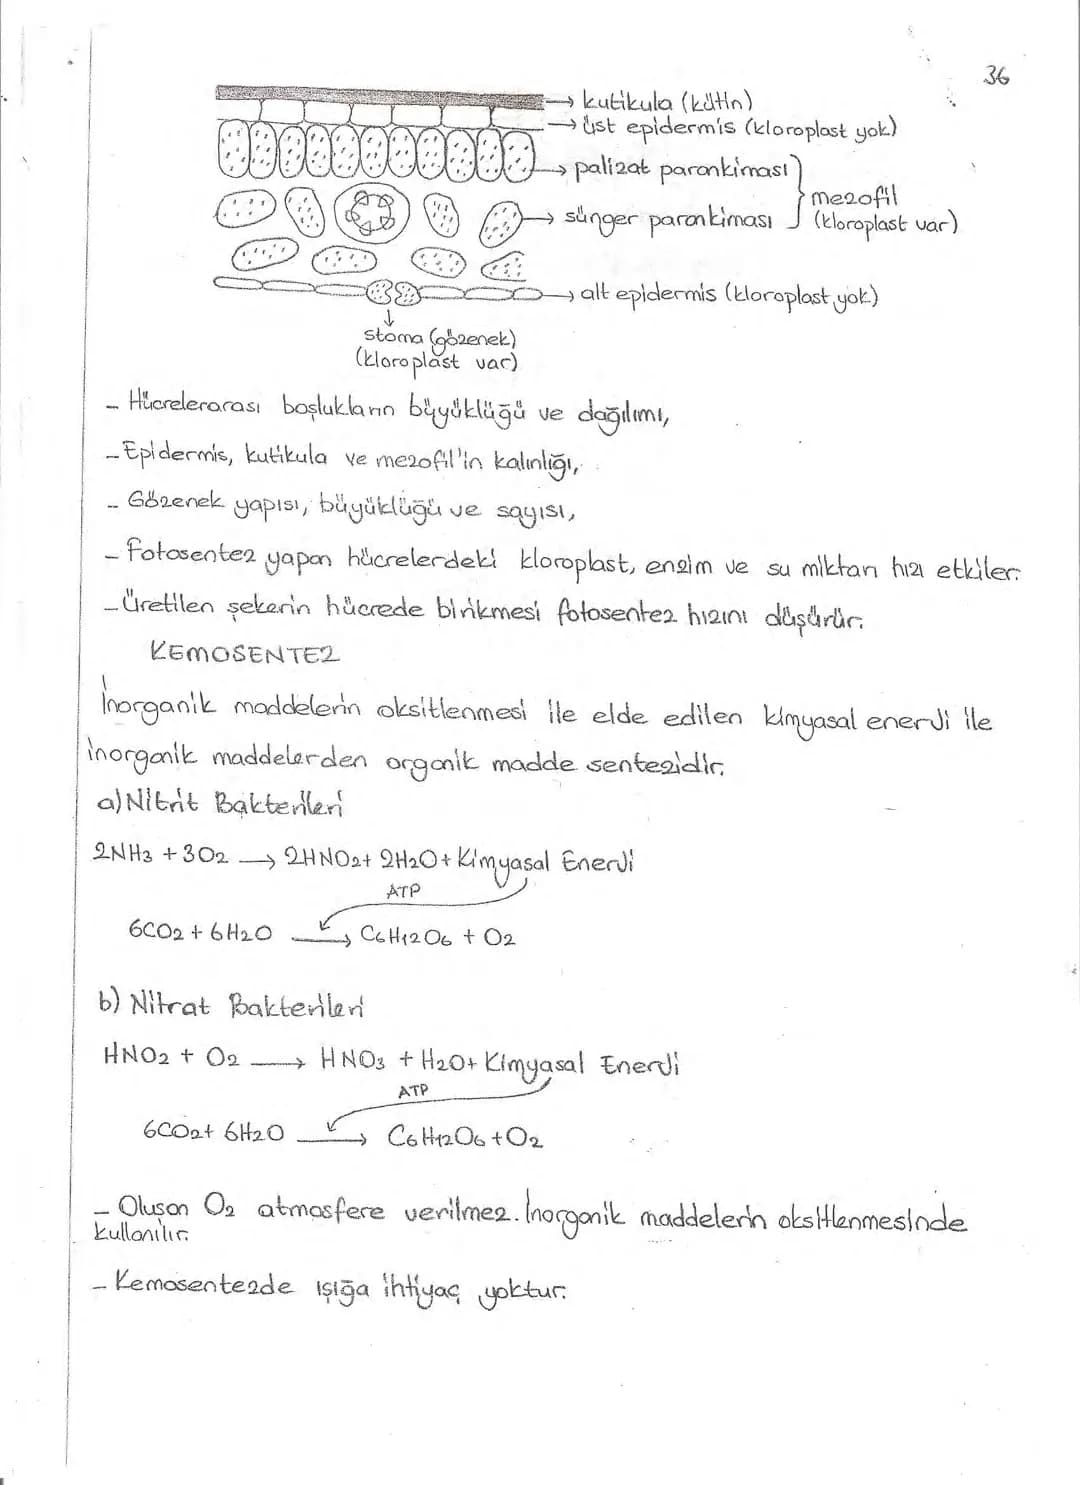 36
kutikula (kütin)
üst epidermis (kloroplast yok)
palizat parankiması
mezofil
sünger parankiması
(kloroplast var)
alt epidermis (kloroplast yok)
stoma (gözenek)
(kloroplast var)
- Hücrelerarası boşlukların büyüklüğü ve dağılımı,
- Epidermis, kutikula ve mezofil'in kalınlığı,
- Gözenek yapısı, büyüklüğü ve sayısı,
- Fotosentez yapan hücrelerdeki kloroplast, enzim ve su miktarı hızı etkiler.
- Üretilen şekerin hücrede birikmesi fotosentez hızını düşürür.
KEMOSENTEZ
İnorganik maddelerin oksitlenmesi ile elde edilen kimyasal enerji ile
inorganik maddelerden organik madde sentezidir.
a) Nitrit Bakterileri
2NH3 + 3O2 → 2HNO2 + 2H2O + Kimyasal Enerji
ATP
6CO2 + 6H2O → C6H12O6 + O2
b) Nitrat Bakterileri
HNO2 + O2 → HNO3 + H2O + Kimyasal Enerji
ATP
6CO2 + 6H2O → C6H12O6 + O2
- Oluşan O2 atmosfere verilmez. İnorganik maddelerin oksitlenmesinde
kullanılır.
- Kemosentezde ışığa ihtiyaç yoktur.